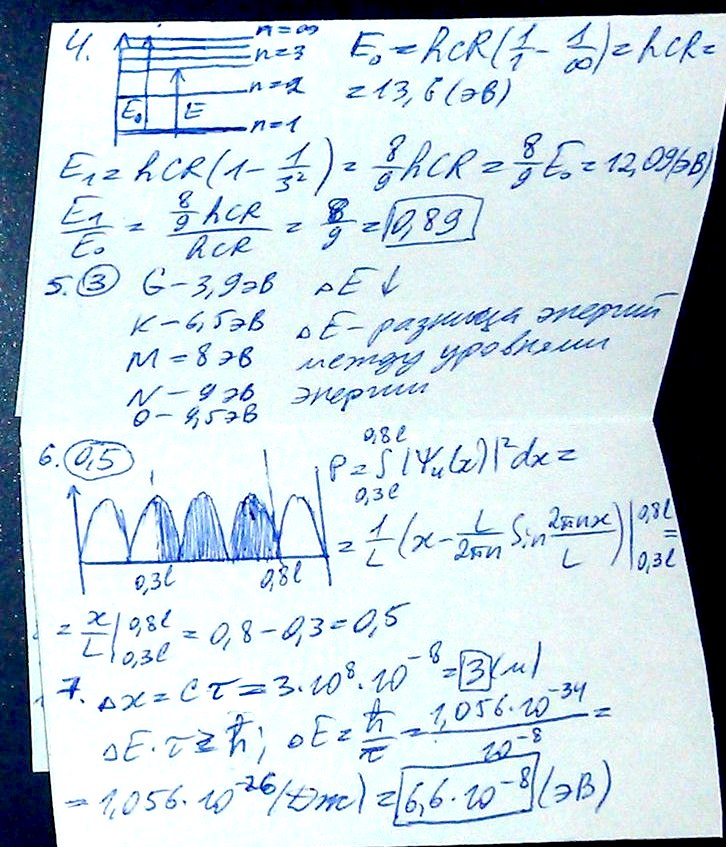 4. n=∞
n=3
n=2
n=1
E₀ E
E₀ = hcR(1/1 - 1/∞) = hcR =
= 13,6 (эВ)
E₁ = hcR(1 - 1/3²) = 8/9 hcR = 8/9 E₀ = 12,09(эВ)
E₁/E₀ = (8/9 hcR)/hcR = 8/9 = 0,89
5. 3 G - 3,9 эВ ΔE ↓
K - 6,5 эВ ΔE - разница энергий
M = 8 эВ между уровнями
N - 9 эВ энергии
O - 9,5 эВ
6. 0,5
0,3l 0,8l
P = ∫_{0,3l}^{0,8l} |Ψₙ(x)|² dx =
= 1/L (x - L/2πn Sin 2πnx/L) |_{0,3l}^{0,8l} =
= x/L |_{0,3l}^{0,8l} = 0,8 - 0,3 = 0,5
7. Δx = cτ = 3·10⁸·10⁻⁸ = 3 (м)
ΔE·τ ≥ ħ; ΔE = ħ/τ = 1,056·10⁻³⁴/10⁻⁸ =
= 1,056·10⁻²⁶ (Дж) = 6,6·10⁻⁸ (эВ)